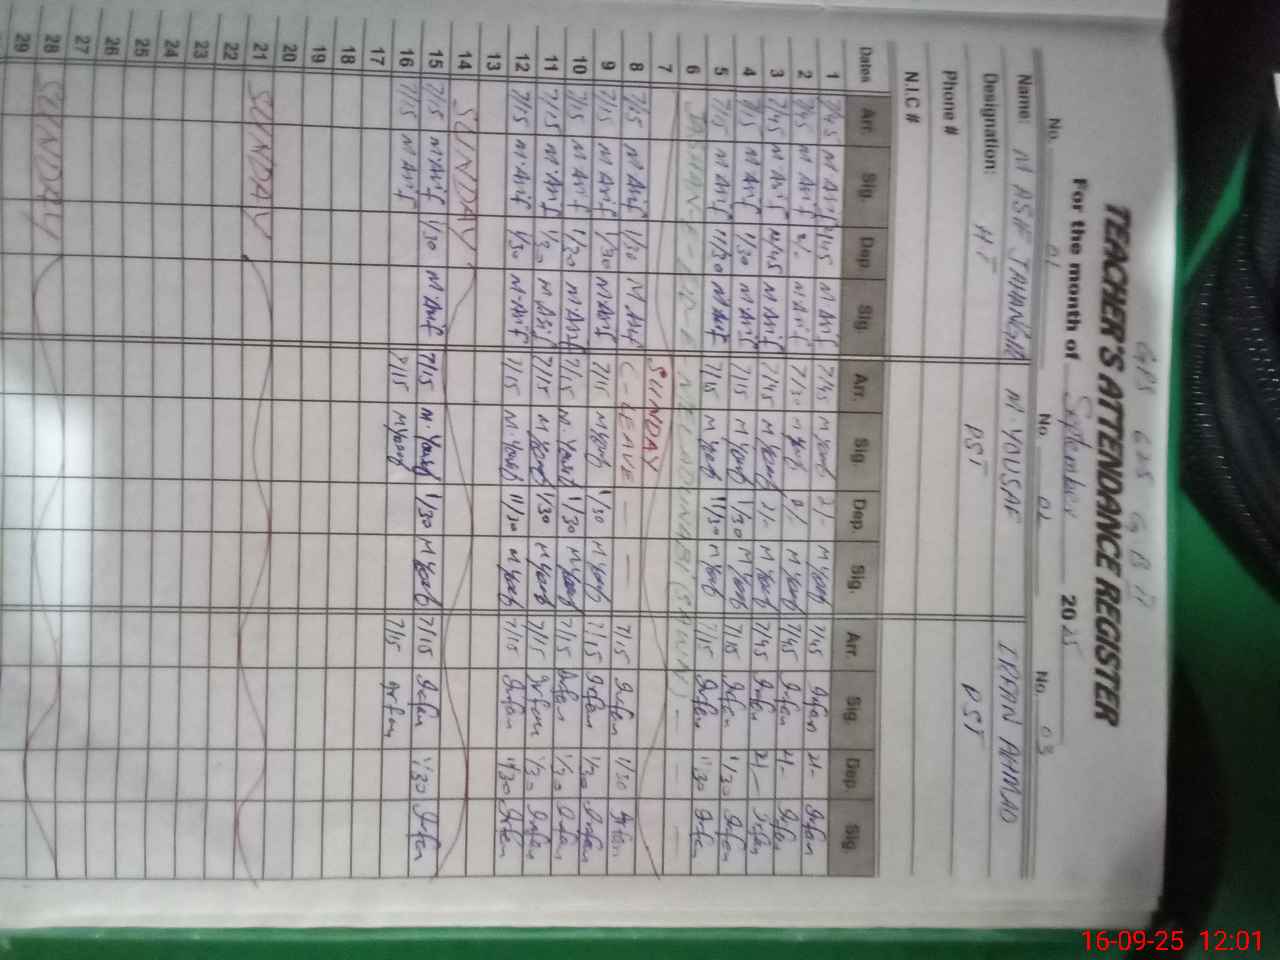 GPS 625 G B
TEACHER'S ATTENDANCE REGISTER
For the month of September 2025
No. 01 No. 02 No. 03
Name: M ASIF JAHANGIR M. YOUSAF IRFAN AHMAD
Designation: HT PST PST
Phone #
N.I.C #
Dates Arr. Sig. Dep. Sig. Arr. Sig. Dep. Sig. Arr. Sig. Dep. Sig.
1 7/45 M Asif 1/45 M Asif 7/45 M Yousaf 2/- M Yousaf 7/45 Irfan 2/- Irfan
2 7/45 M Asif 2/- M Asif 7/30 M Yousaf 2/- M Yousaf 7/45 Irfan 2/- Irfan
3 7/45 M Asif M Asif 7/45 M Yousaf 2/- M Yousaf 7/45 Irfan 2/- Irfan
4 7/15 M Asif 1/30 M Asif 7/15 M Yousaf 1/30 M Yousaf 7/15 Irfan 1/30 Irfan
5 7/15 M Asif 11/30 M Asif 7/15 M Yousaf 11/30 M Yousaf 7/15 Irfan 11/30 Irfan
6
7 SUNDAY
8 7/15 M Asif 1/30 M Asif C-LEAVE — — 7/15 Irfan 1/30 Irfan
9 7/15 M Asif 1/30 M Asif 7/15 M Yousaf 1/30 M Yousaf 7/15 Irfan 1/30 Irfan
10 7/15 M Asif 1/30 M Asif 7/15 M. Yousaf 1/30 M Yousaf 7/15 Irfan 1/30 Irfan
11 7/15 M Asif 1/30 M Asif 7/15 M Yousaf 1/30 M Yousaf 7/15 Irfan 1/30 Irfan
12 7/15 M. Asif 1/30 M. Asif 7/15 M. Yousaf 11/30 M Yousaf 7/15 Irfan 11/30 Irfan
13
14 SUNDAY
15 7/15 M. Asif 1/30 M. Asif 7/15 M. Yousaf 1/30 M Yousaf 7/15 Irfan 1/30 Irfan
16 7/15 M Asif 7/15 M Yousaf 7/15 Irfan
17
18
19
20
21 SUNDAY
22
23
24
25
26
27
28 SUNDAY
29
16-09-25 12:01